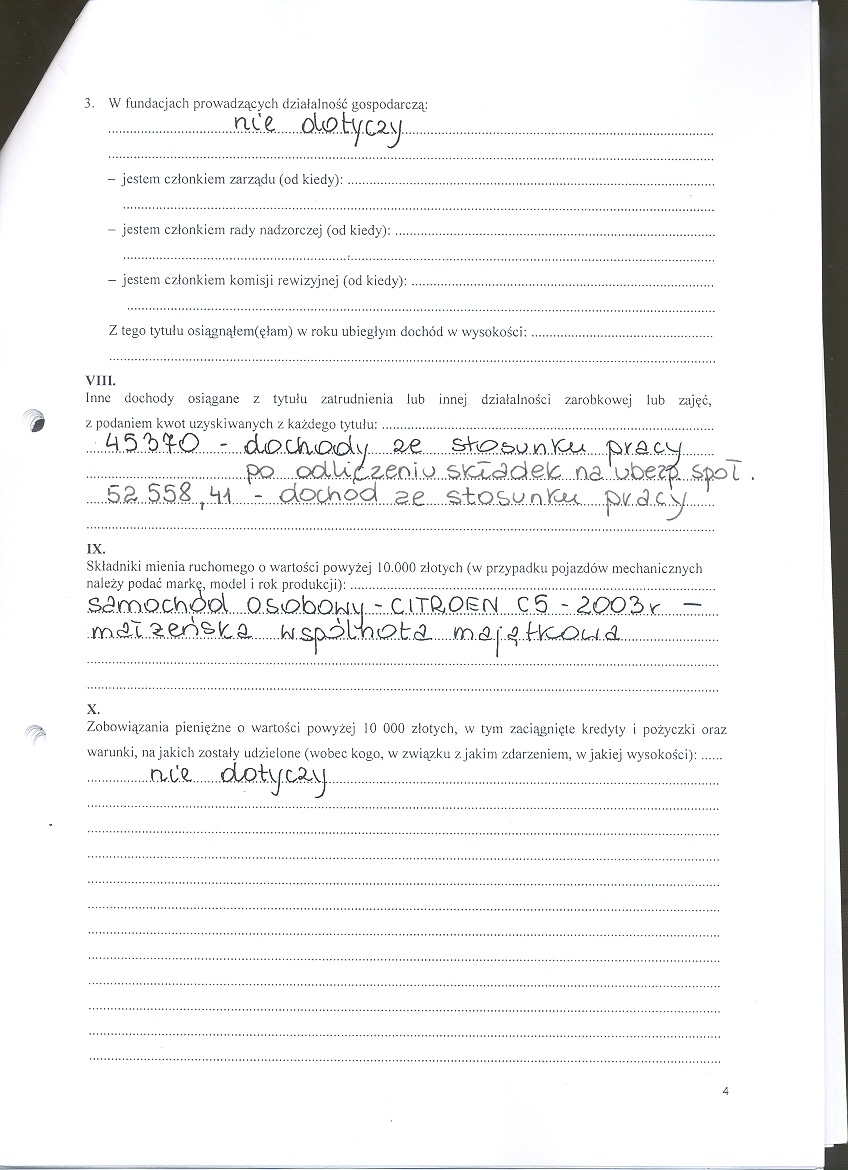 3. W fundacjach prowadzących działalność gospodarczą:
nie dotyczy
– jestem członkiem zarządu (od kiedy):
– jestem członkiem rady nadzorczej (od kiedy):
– jestem członkiem komisji rewizyjnej (od kiedy):
Z tego tytułu osiągnąłem(ęłam) w roku ubiegłym dochód w wysokości:
VIII.
Inne dochody osiągane z tytułu zatrudnienia lub innej działalności zarobkowej lub zajęć,
z podaniem kwot uzyskiwanych z każdego tytułu:
45370 - dochody ze stosunku pracy
po odliczeniu składek na ubezp. społ.
52 558,41 - dochód ze stosunku pracy
IX.
Składniki mienia ruchomego o wartości powyżej 10.000 złotych (w przypadku pojazdów mechanicznych
należy podać markę, model i rok produkcji):
samochód osobowy - CITROEN C5 - 2003r –
małżeńska wspólnota majątkowa
X.
Zobowiązania pieniężne o wartości powyżej 10 000 złotych, w tym zaciągnięte kredyty i pożyczki oraz
warunki, na jakich zostały udzielone (wobec kogo, w związku z jakim zdarzeniem, w jakiej wysokości):
nie dotyczy
4